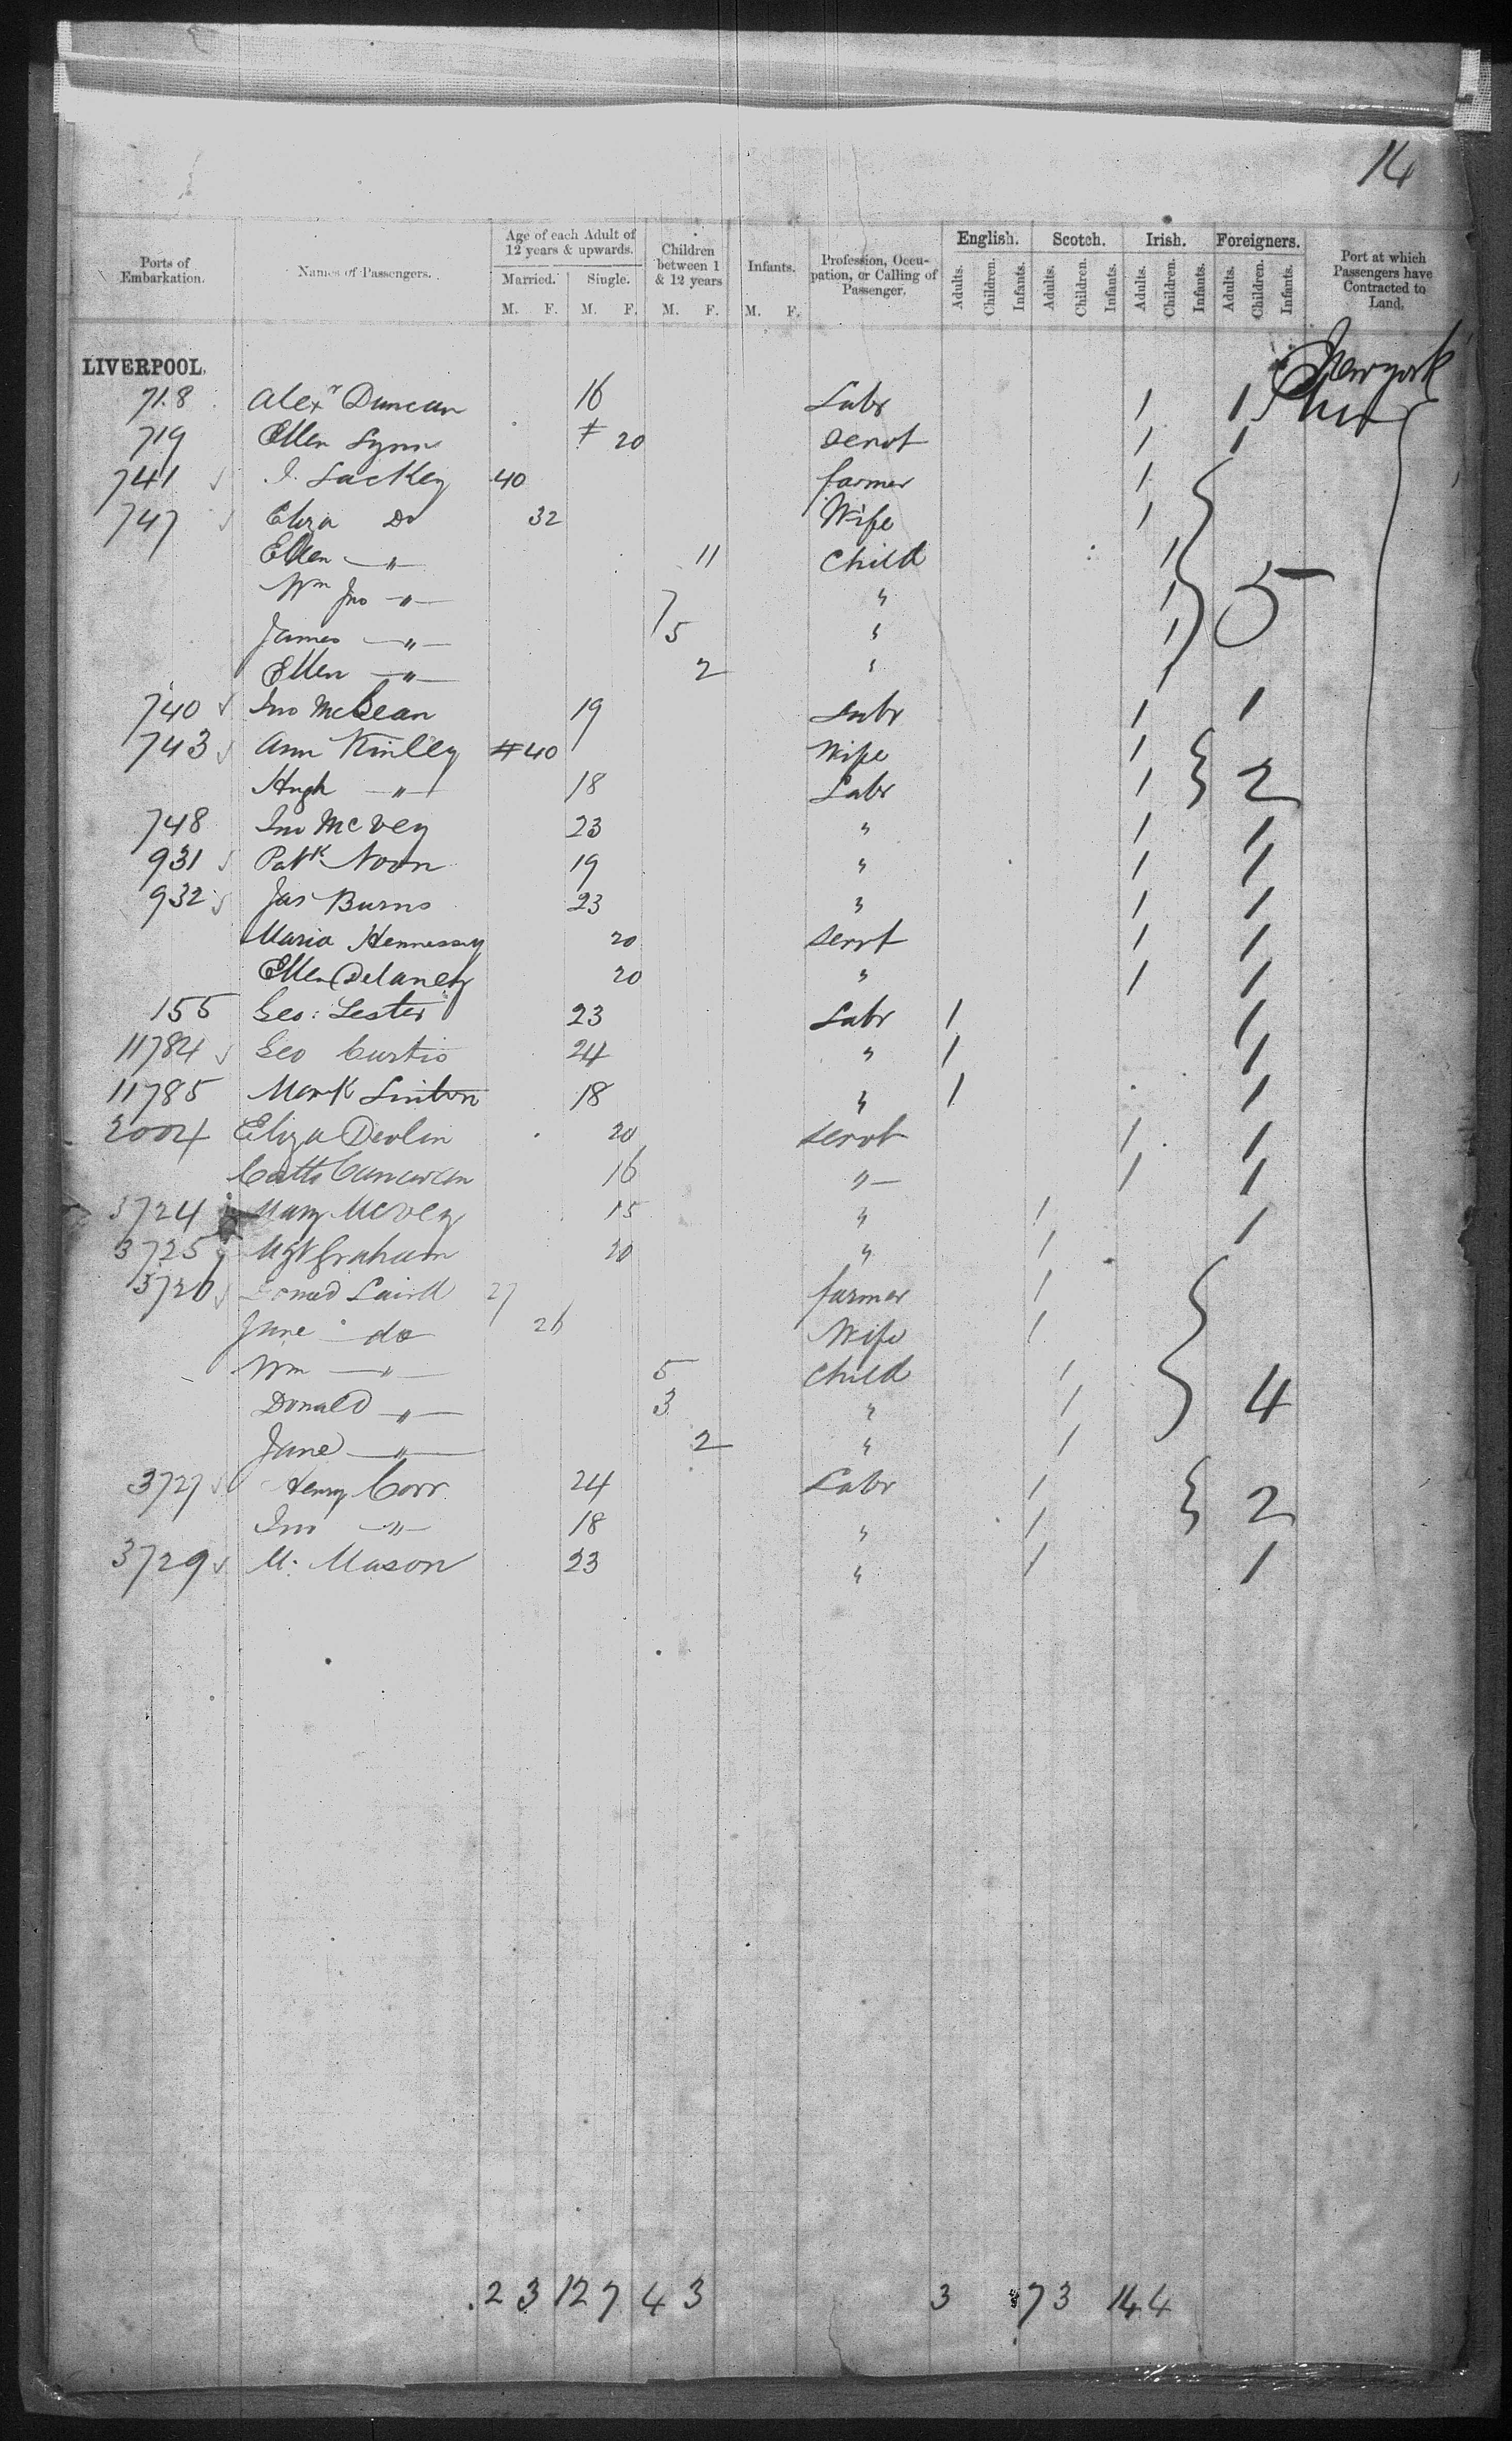 14
Ports of Embarkation. Names of Passengers. Age of each Adult of 12 years & upwards. Children between 1 & 12 years Infants. Profession, Occupation, or Calling of Passenger. English. Scotch. Irish. Foreigners. Port at which Passengers have Contracted to Land.
Married. Single.
M. F. M. F. M. F. M. F. Adults. Children. Infants. Adults. Children. Infants. Adults. Children. Infants. Adults. Children. Infants.
LIVERPOOL. New york
718 Alexr Duncan 16 Labr 1 1
719 Ellen Lynn 20 Servt 1 1
741 J. Lackey 40 farmer 1
747 Eliza Do 32 Wife 1
Ellen " 11 Child 1
Wm Jno " 7 " 1 5
James " 5 " 1
Ellen " 2 " 1
740 Jno McBean 19 Labr 1 1
743 Ann Kinley # 40 Wife 1
Hugh " 18 Labr 1 2
748 Jno McVey 23 " 1 1
931 Patk Noon 19 " 1 1
932 Jas Burns 23 " 1 1
Maria Hennessey 20 Servt 1 1
Ellen Delaney 20 " 1 1
155 Geo: Lester 23 Labr 1 1
11784 Geo Curtis 24 " 1 1
11785 Mark Linton 18 " 1 1
2004 Eliza Devlin 20 Servt 1 1
16 " 1 1
3724 Mary McVey 15 " 1 1
3725 Mgt Graham 20 " 1
3726 Laird 27 farmer 1
Jane do 26 Wife 1
Wm " 5 Child 1
Donald " 3 " 1 4
Jane " 2 " 1
3727 Henry Corr 24 Labr 1
Jno " 18 " 1 2
3729 M. Mason 23 " 1 1
2 3 12 7 4 3 3 7 3 14 4